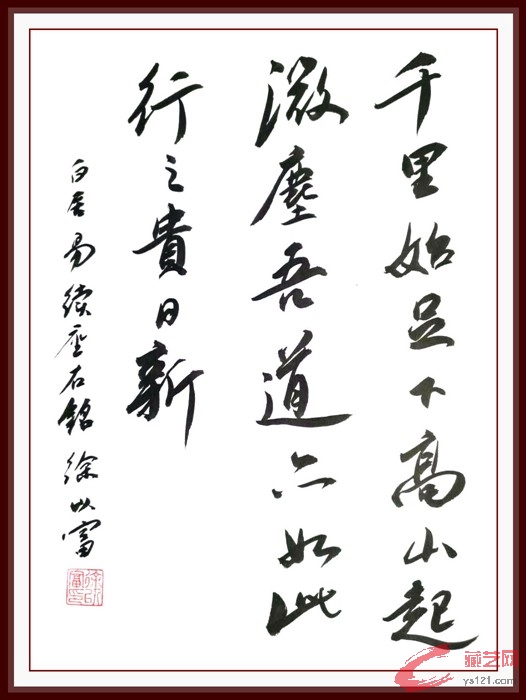 千里始足下高山起
微塵吾道亦如此
行之貴日新
白居易續座石銘 徐以富
徐以富印
藏艺网
ys121.com